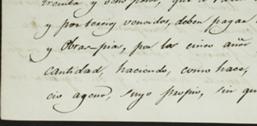 treinta y ocho pesos, que á
y por tercios vencidos, deben pagar
y Obras pias, por los cinco años
cantidad, haciendo, como hace,
cio ageno, suyo propio, sin qu